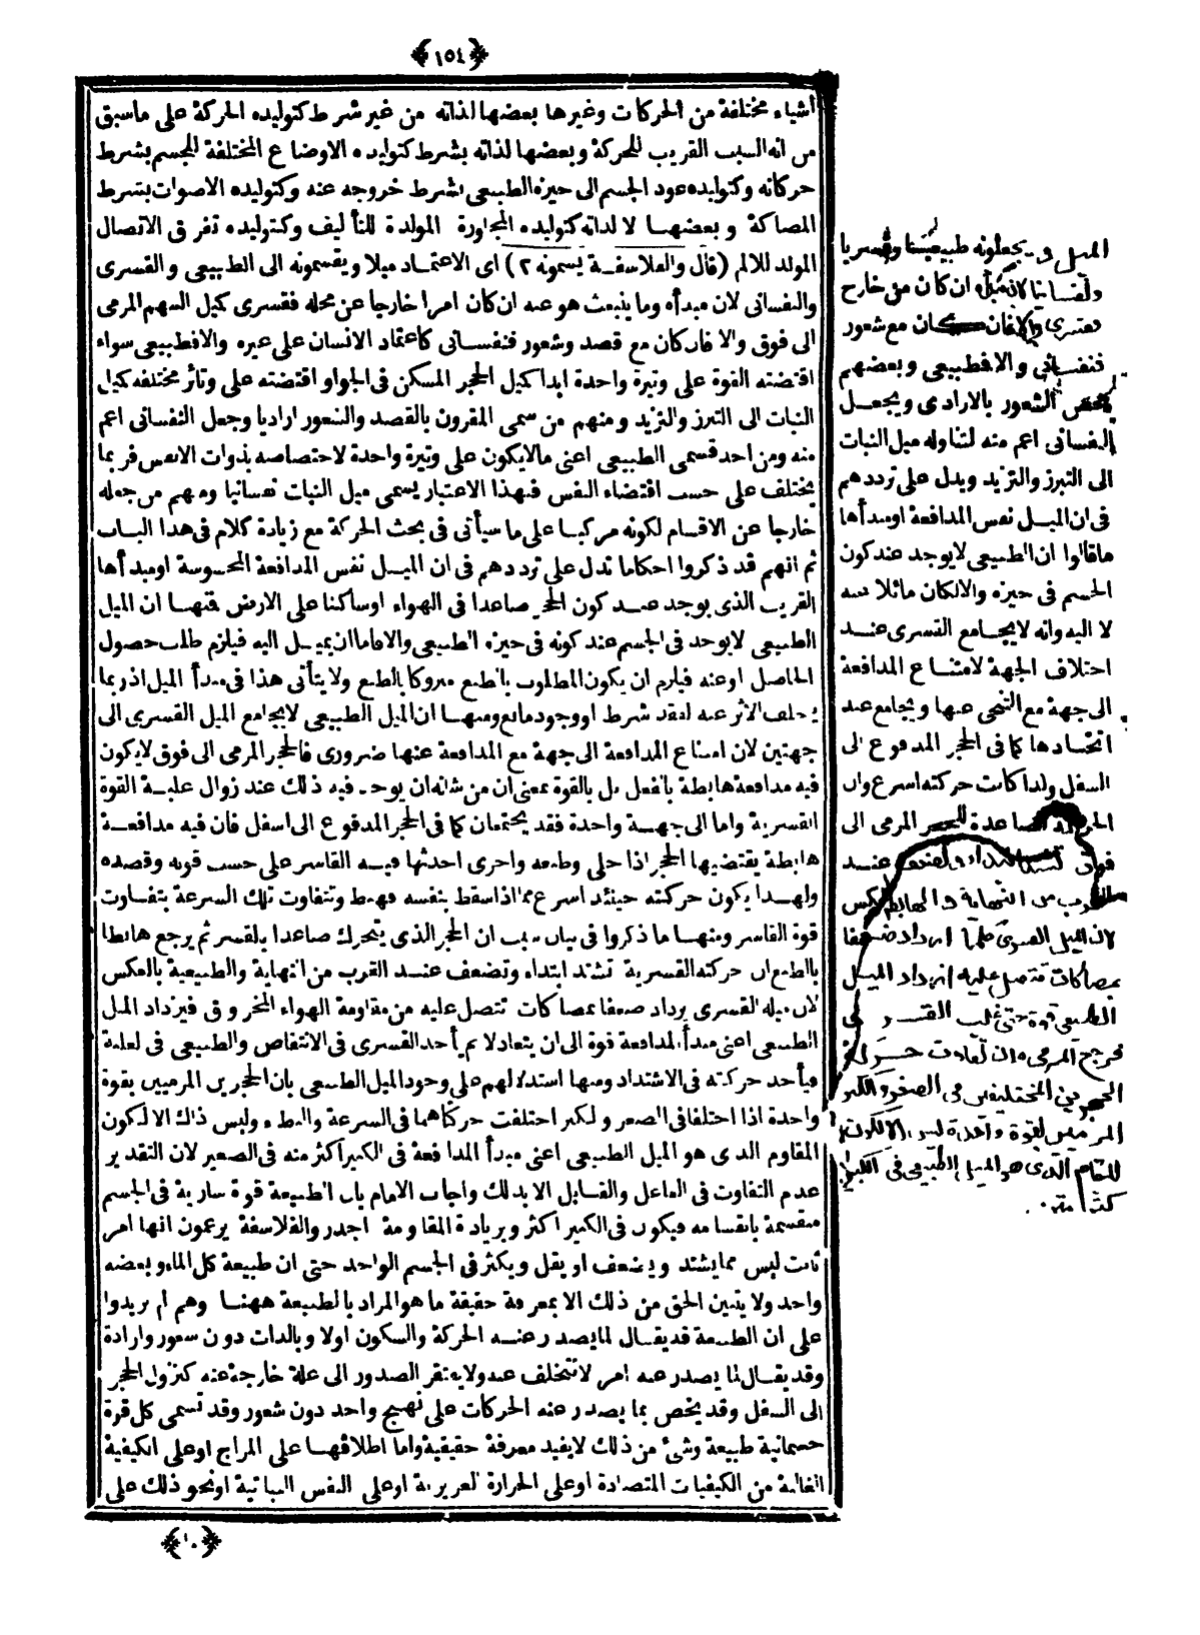 ﴿١٥٤﴾
أشياء مختلفة من الحركات وغيرها بعضها لذاته من غير شرط كتوليده الحركة على ماسبق
من انه السبب القريب للحركة وبعضها لذاته بشرط كتوليده الاوضاع المختلفة للجسم بشرط
حركاته وكتوليده عود الجسم الى حيزه الطبيعى بشرط خروجه عنه وكتوليده الاصوات بشرط
المصاكة وبعضها لا لذاته كتوليده المجاورة المولدة للتأليف وكتوليده تفرق الاتصال
المولد للالم (قال والفلاسفة يسمونه ٢) اى الاعتماد ميلا ويقسمونه الى الطبيعى والقسرى
والنفسانى لان مبدأه وما ينبعث هو عنه ان كان امرا خارجا عن محله فقسرى كميل السهم المرمى
الى فوق والا فان كان مع قصد وشعور فنفسانى كاعتماد الانسان على غيره والافطبيعى سواء
اقتضته القوة على وتيرة واحدة ابدا كميل الحجر المسكن فى الجو او اقتضته على وتائر مختلفه كميل
النبات الى التبرز والتزيد ومنهم من سمى المقرون بالقصد والشعور اراديا وجعل النفسانى اعم
منه ومن احد قسمى الطبيعى اعنى مالايكون على وتيرة واحدة لاختصاصه بذوات الانفس فربما
يختلف على حسب اقتضاء النفس فبهذا الاعتبار يسمى ميل النبات نفسانيا ومنهم من جعله
خارجا عن الاقسام لكونه مركبا على ما سيأتى فى بحث الحركة مع زيادة كلام فى هذا الباب
ثم انهم قد ذكروا احكاما تدل على ترددهم فى ان الميل نفس المدافعة المحسوسة اومبدأها
القريب الذى يوجد عند كون الحجر صاعدا فى الهواء اوساكنا على الارض فمنها ان الميل
الطبيعى لايوجد فى الجسم عند كونه فى حيزه الطبيعى والافاما ان يميل اليه فيلزم طلب حصول
الحاصل اوعنه فيلزم ان يكون المطلوب بالطبع متروكا بالطبع ولا يتأتى هذا فى مبدأ الميل اذ ربما
يتخلف الاثر عنه لفقد شرط او وجود مانع ومنها ان الميل الطبيعى لايجامع الميل القسرى الى
جهتين لان امتناع المدافعة الى جهة مع المدافعة عنها ضرورى فالحجر المرمى الى فوق لايكون
فيه مدافعة هابطة بالفعل بل بالقوة بمعنى ان من شانه ان يوجد فيه ذلك عند زوال غلبة القوة
القسرية واما الى جهة واحدة فقد يجتمعان كما فى الحجر المدفوع الى اسفل فان فيه مدافعة
هابطة يقتضيها الحجر اذا خلى وطبعه واخرى احدثها فيه القاسر على حسب قوته وقصده
ولهذا يكون حركته حينئذ اسرع مما اذا سقط بنفسه فهبط وتتفاوت تلك السرعة بتفاوت
قوة القاسر ومنها ما ذكروا فى بيان سبب ان الحجر الذى يتحرك صاعدا بالقسر ثم يرجع هابطا
بالطبع ان حركته القسرية تشتد ابتداء وتضعف عند القرب من النهاية والطبيعية بالعكس
لان ميله القسرى يزداد ضعفا بمصاكات تتصل عليه من مقاومة الهواء المخروق فيزداد الميل
الطبيعى اعنى مبدأ المدافعة قوة الى ان يتعادلا ثم يأخذ القسرى فى الانتقاص والطبيعى فى الغلبة
فيأخذ حركته فى الاشتداد ومنها استدلالهم على وجود الميل الطبيعى بان الحجرين المرميين بقوة
واحدة اذا اختلفا فى الصغر والكبر اختلفت حركتاهما فى السرعة والبطء وليس ذلك الا لكون
المقاوم الذى هو الميل الطبيعى اعنى مبدأ المدافعة فى الكبير اكثر منه فى الصغير لان التقدير
عدم التفاوت فى الفاعل والقابل الا بذلك واجاب الامام بان الطبيعة قوة سارية فى الجسم
منقسمة بانقسامه فيكون فى الكبير اكثر وبزيادة المقاومة اجدر والفلاسفة يزعمون انها امر
ثابت ليس مما يشتد ويضعف او يقل ويكثر فى الجسم الواحد حتى ان طبيعة كل الماء وبعضه
واحد ولا يتبين الحق من ذلك الا بمعرفة حقيقة ما هو المراد بالطبيعة ههنا وهم لم يزيدوا
على ان الطبيعة قد يقال لما يصدر عنه الحركة والسكون اولا وبالذات دون شعور وارادة
وقد يقال لما يصدر عنه امر لا يتخلف عنه ولا يفتقر الصدور الى علة خارجة عنه كنزول الحجر
الى السفل وقد يخص بما يصدر عنه الحركات على نهج واحد دون شعور وقد تسمى كل قوة
جسمانية طبيعة وشئ من ذلك لايفيد معرفة حقيقية واما اطلاقها على المزاج اوعلى الكيفية
الغالبة من الكيفيات المتضادة اوعلى الحرارة الغريزية اوعلى النفس النباتية اونحو ذلك على
الميل ويجعلونه طبيعيا وقسريا
ونفسانيا لان مبدأه ان كان من خارج
فقسرى والا فان كان مع شعور
فنفسانى والا فطبيعى وبعضهم
يخص الشعور بالارادى ويجعل
النفسانى اعم منه لتناوله ميل النبات
الى التبرز والتزيد ويدل على ترددهم
فى ان الميل نفس المدافعة اومبدأها
ماقالوا ان الطبيعى لايوجد عند كون
الجسم فى حيزه والالكان مائلا عنه
لا اليه وانه لايجامع القسرى عند
اختلاف الجهة لامتناع المدافعة
الى جهة مع التنحى عنها ويجامع عند
اتحادها كما فى الحجر المدفوع الى
السفل ولذا كانت حركته اسرع وان
الحركة الصاعدة للحجر المرمى الى
فوق تشتد ابتداء وتضعف عند
القرب من النهاية والهابط بالعكس
لان الميل القسرى كلما ازداد ضعفا
بمصاكات تتصل عليه ازداد الميل
الطبيعى قوة حتى غلب القسرى
فرجع المرمى وان تفاوت حركة
الحجرين المختلفين فى الصغر والكبر
المرميين بقوة واحدة ليس الا لكون
المقاوم الذى هو الميل الطبيعى فى الكبير
اكثر متن.
﴿٢٠﴾